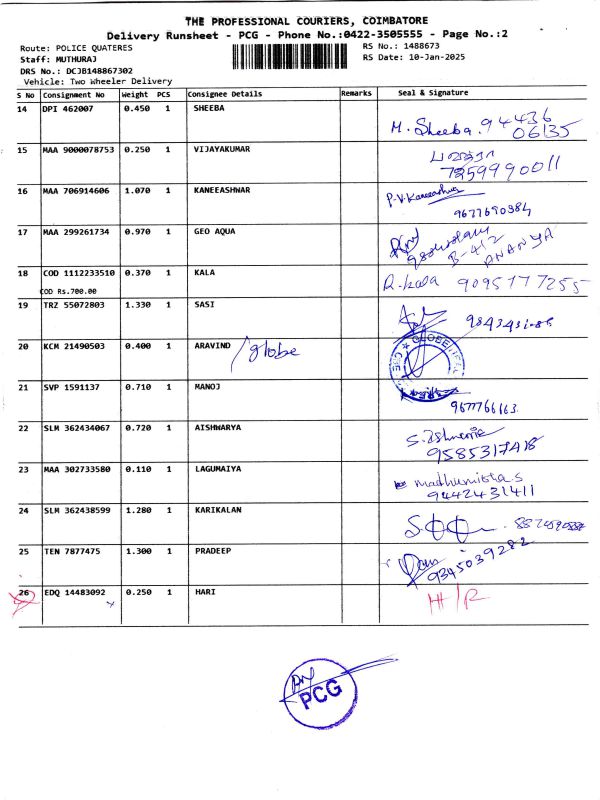 THE PROFESSIONAL COURIERS, COIMBATORE
Delivery Runsheet - PCG - Phone No.:0422-3505555 - Page No.:2
Route: POLICE QUATERES
RS No.: 1488673
Staff: MUTHURAJ
RS Date: 10-Jan-2025
DRS No.: DCJB148867302
Vehicle: Two Wheeler Delivery
S No Consignment No Weight PCS Consignee Details Remarks Seal & Signature
14 DPI 462007 0.450 1 SHEEBA
M. Sheeba. 94436
06135
15 MAA 9000078753 0.250 1 VIJAYAKUMAR
7259990011
16 MAA 706914606 1.070 1 KANEEASHWAR
P.V.Kaneeashwar
9677690384
17 MAA 299261734 0.970 1 GEO AQUA
B-412
ANANYA
18 COD 1112233510 0.370 1 KALA
COD Rs.700.00
R-kala 9095177255
19 TRZ 55072803 1.330 1 SASI
20 KCM 21490503 0.400 1 ARAVIND / globe
21 SVP 1591137 0.710 1 MANOJ
9677766163
22 SLM 362434067 0.720 1 AISHWARYA
9585317418
23 MAA 302733580 0.110 1 LAGUMAIYA
madhumista.s
9442431411
24 SLM 362438599 1.280 1 KARIKALAN
25 TEN 7877475 1.300 1 PRADEEP
9345039282
26 EDQ 14483092 0.250 1 HARI
H/R
PCG